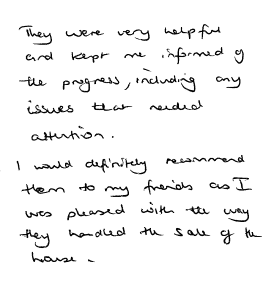 They were very helpful
and kept me informed of
the progress, including any
issues that needed
attention.
I would definitely recommend
them to my friends as I
was pleased with the way
they handled the sale of the
house.